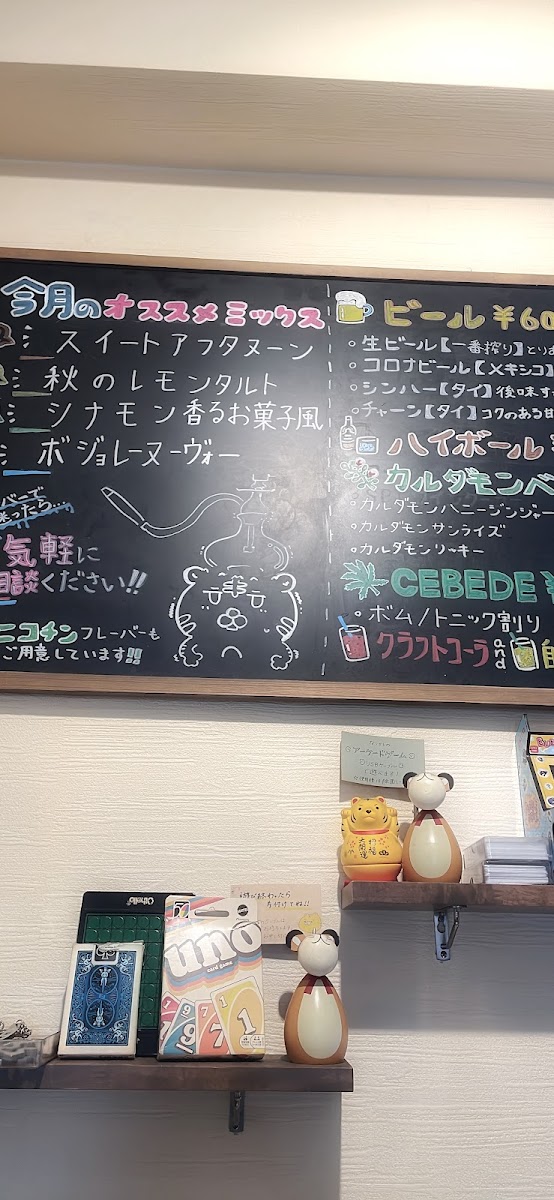 今月のオススメミックス
スイートアフタヌーン
秋のレモンタルト
シナモン香るお菓子風
ボジョレーヌーヴォー
バーで
迷ったら…
気軽に
相談ください!!
ニコチンフレーバーも
ご用意しています!!
ビール ¥60
生ビール【一番搾り】とりあ
コロナビール【メキシコ】
シンハー【タイ】後味す
チャーン【タイ】コクのある甘
ハイボール ¥
カルダモンベ
カルダモンハニージンジャー
カルダモンサンライズ
カルダモンリッキー
CEBEDE ¥
ボム/トニック割り
クラフトコーラ and 自
アーケードゲーム
大開運
招福
遊び終わったら
片付けてね!!
Othello
uno
card game
7 9 7 1